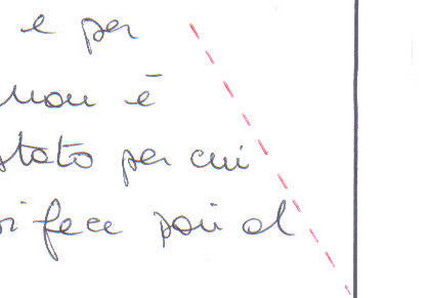 e per
non è
stato per cui
si fece poi al